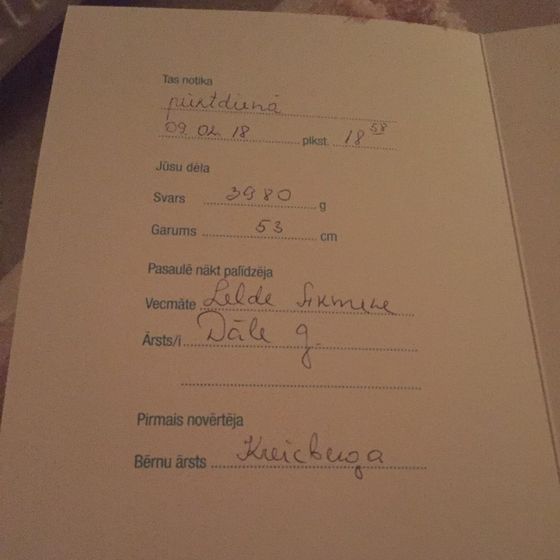 Tas notika
piektdienā
09. 02. 18 plkst. 18 58
Jūsu dēla
Svars 3980 g
Garums 53 cm
Pasaulē nākt palīdzēja
Vecmāte Lelde
Ārsts/i Dāle g.
Pirmais novērtēja
Bērnu ārsts Kreicberga